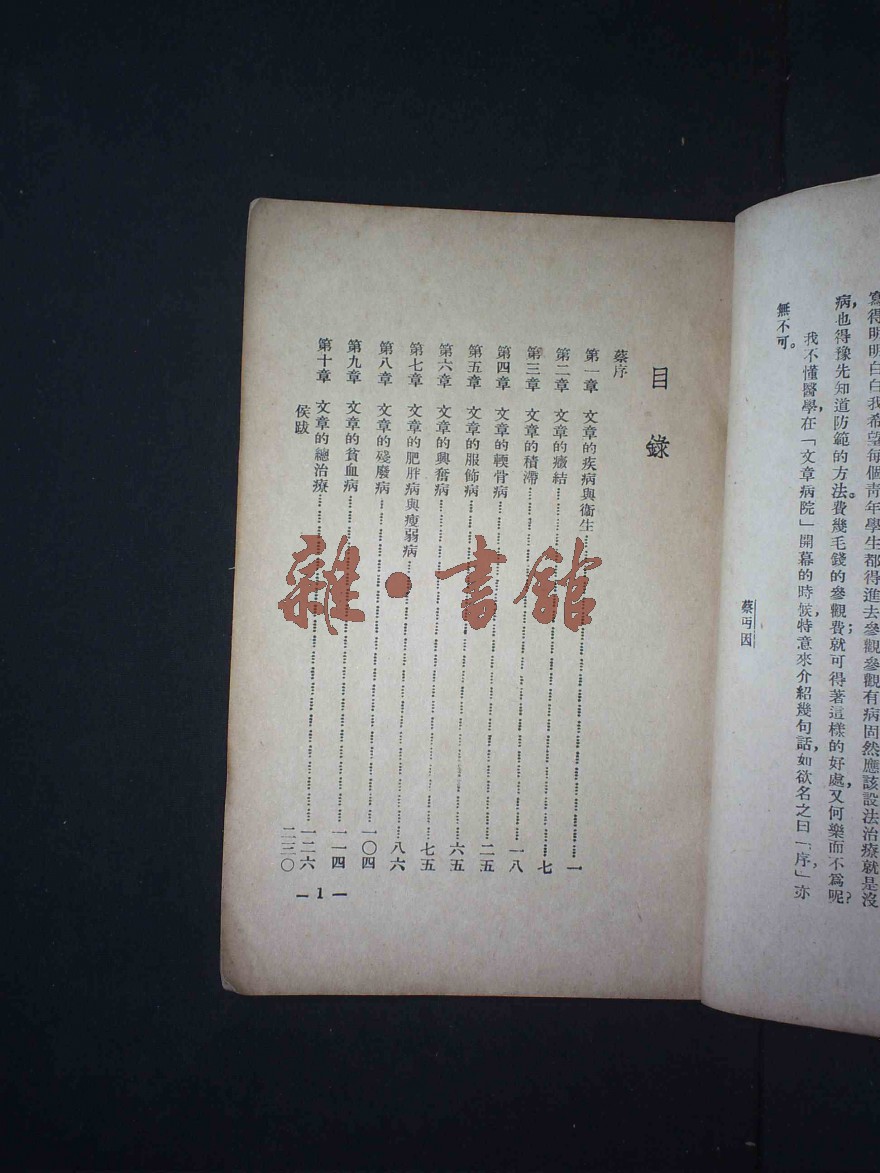 寫得明明白白我希望每個靑年學生都得進去參觀參觀有病固然應該設法治療就是沒
病，也得豫先知道防範的方法。費幾毛錢的參觀費；就可得著這樣的好處，又何樂而不爲呢？
我不懂醫學，在「文章病院」開幕的時候，特意來介紹幾句話，如欲名之曰「序」，亦
無不可。
蔡丏因
目錄
蔡序
第一章 文章的疾病與衞生……一
第二章 文章的癥結……七
第三章 文章的積滯……一八
第四章 文章的輭骨病……二五
第五章 文章的服飾病……六五
第六章 文章的興奮病……七五
第七章 文章的肥胖病與瘦弱病……八六
第八章 文章的殘廢病……一〇四
第九章 文章的貧血病……一一四
第十章 文章的總治療……一二六
侯跋……二三〇
— 1 —
雜·書館